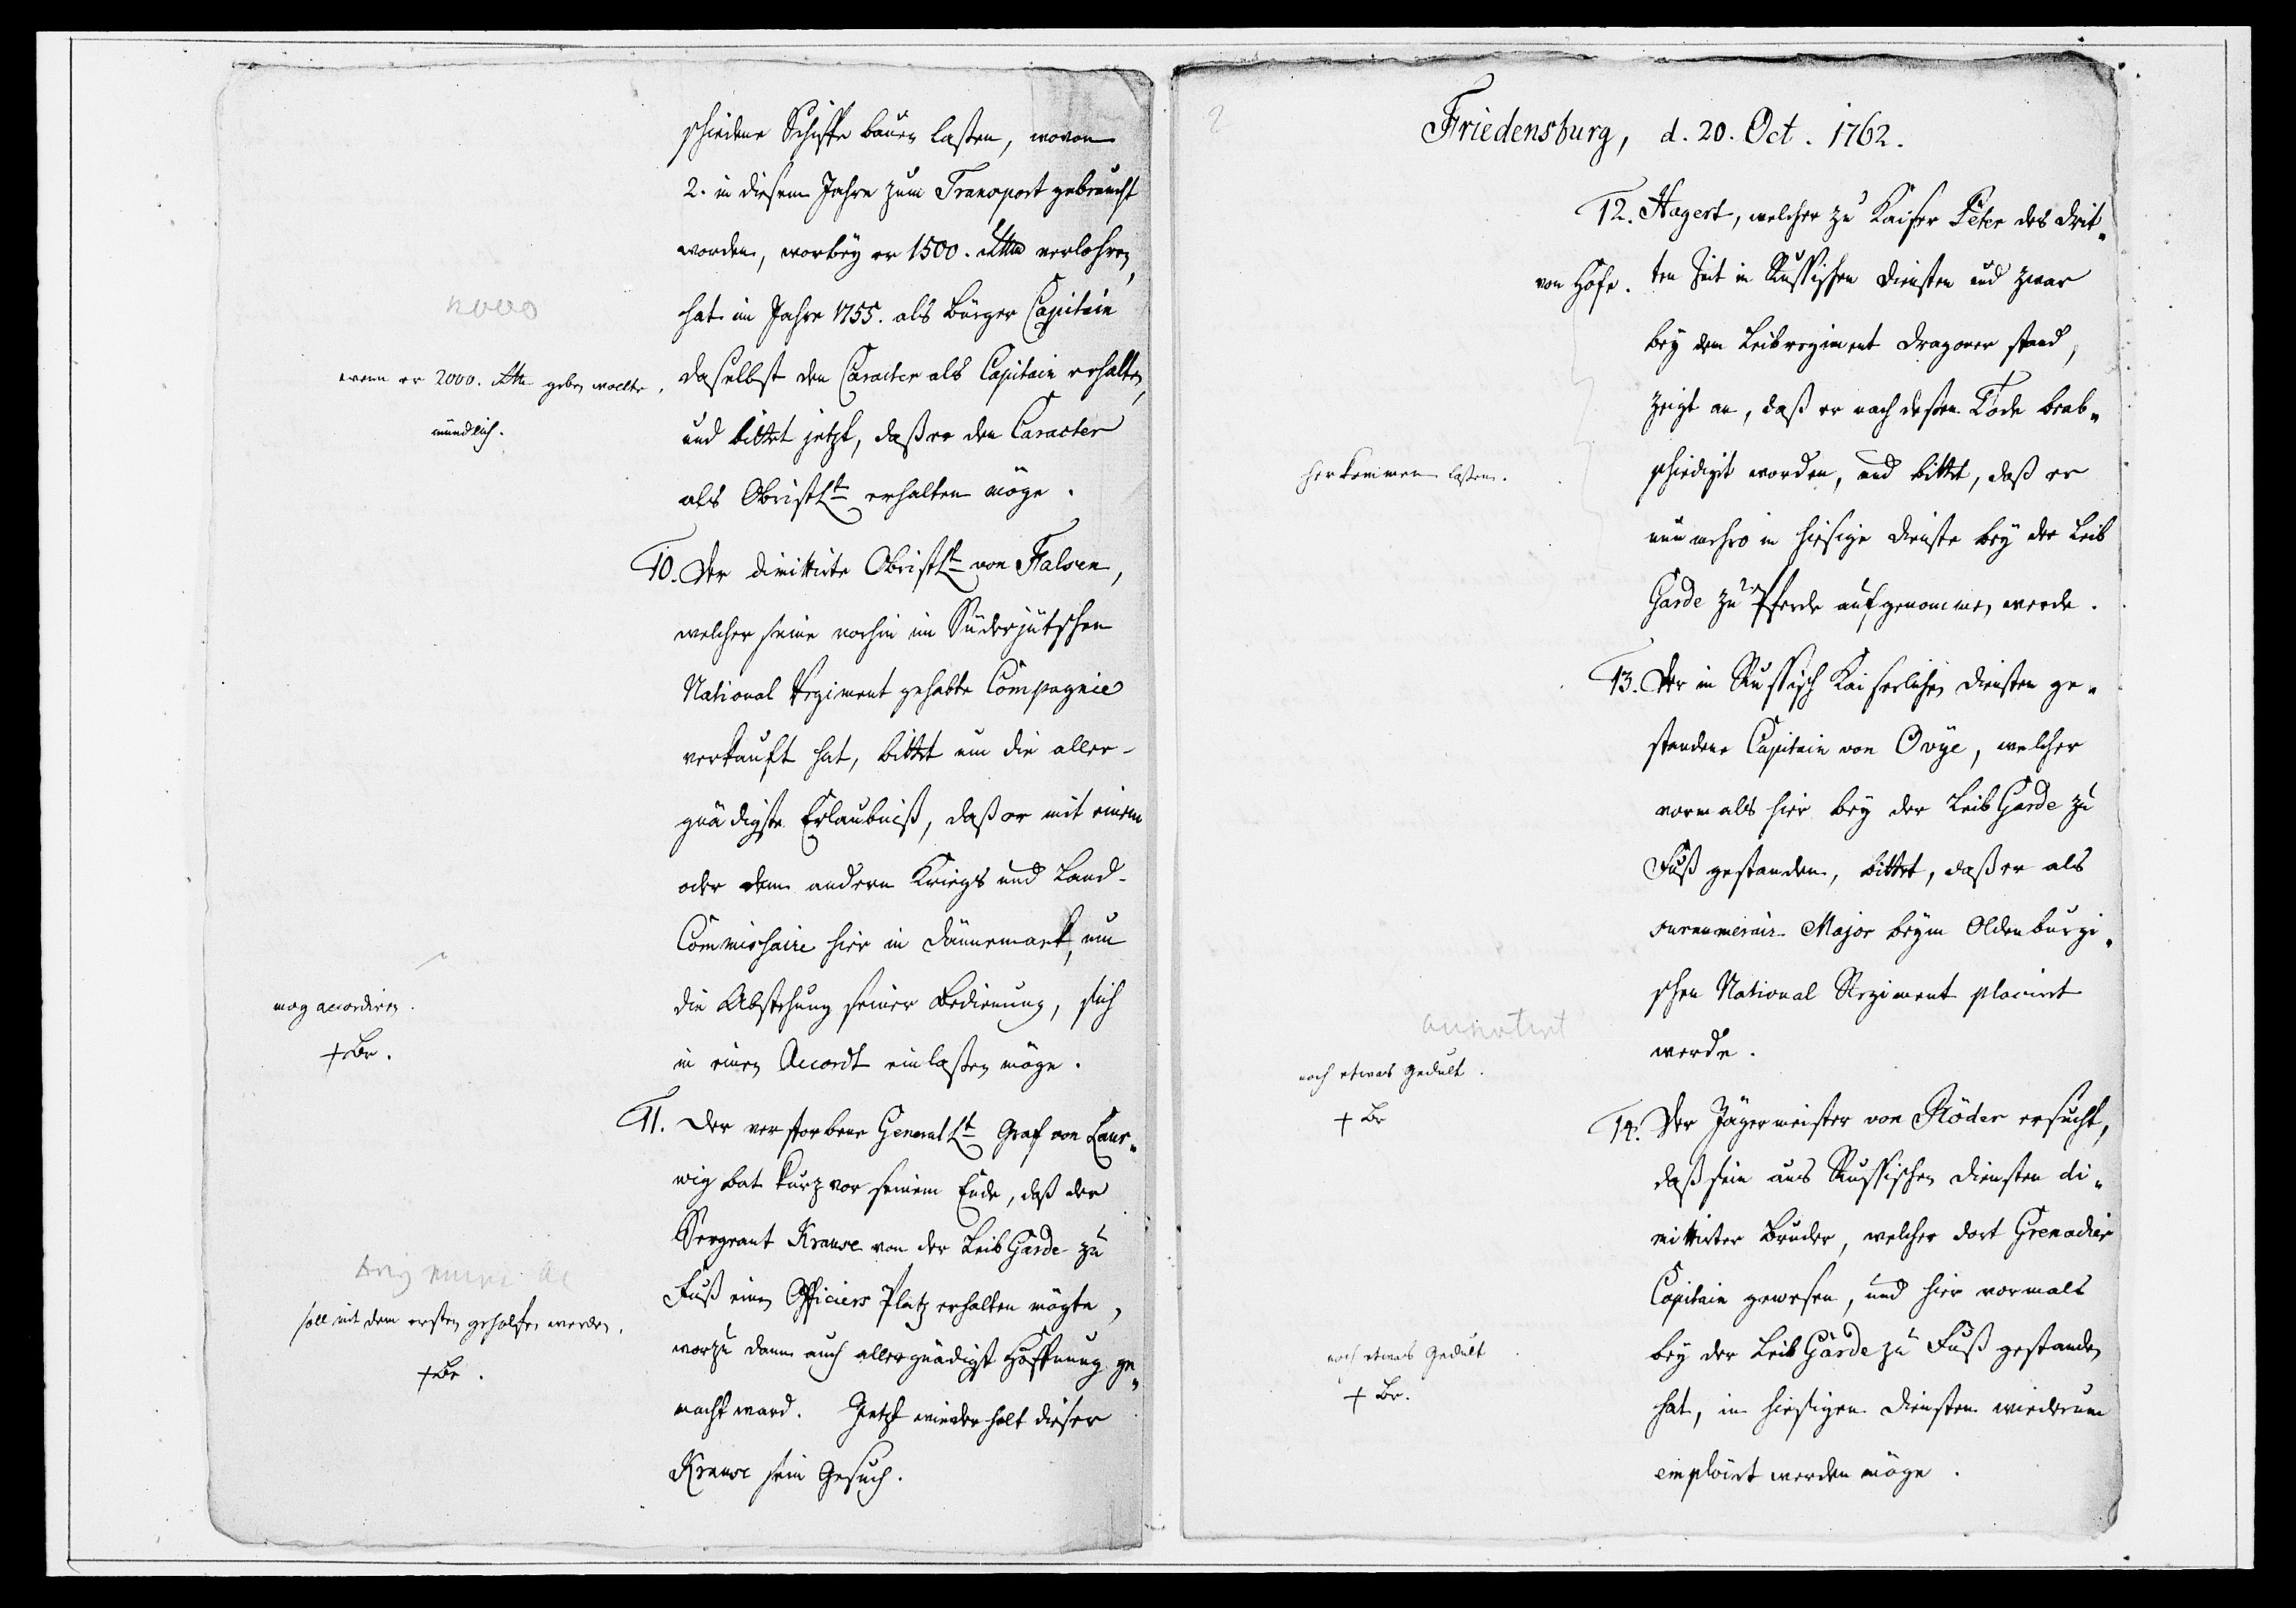 schiedene Schiffe bauen laßen, wovon
2. in diesem Jahre zum Transport gebraucht
worden, worbey er 1500. Rthlr verlohren,
hat im Jahre 1755. als Bürger Capitain
daselbst den Caracter als Capitain erhalten,
und bittet jetzt, daß er den Caracter
als ObristLt erhalten möge.
2000
wenn er 2000. Rthlr geben wollte.
mündlich.
10. Der dimittirte ObristLt von Falsen,
welcher seine vorhin im Süderjütschen
National Regiment gehabte Compagnie
verkauft hat, bittet um die aller-
gnädigste Erlaubniß, daß er mit einem
oder dem andern Kriegs und Land-
Commissaire hier in Dännemark, um
die Abstehung seiner Bedienung, sich
in einen Accordt einlaßen möge.
mag accordiren.
+ Br.
11. Der verstorbene GeneralLt Graf von Laur-
wig bat kurz vor seinem Ende, daß der
Sergeant Krause von der Leib Garde zu
Fuß einen Officiers Platz erhalten mögte,
worzu dann auch allergnädigst Hoffnung ge-
macht ward. Jetzt wiederholt dieser
Krause sein Gesuch.
soll mit dem ersten geholfen werden.
+ Br.
Friedensburg, d. 20. Oct. 1762.
12. Hagert, welcher zu Kaiser Peter des drit-
von Hofe. ten Zeit in Russischen Diensten und zwar
bey dem Leibregiment Dragoner stand,
zeigt an, daß er nach deßen Tode beab-
schiedigit worden, und bittet, daß er
nunmehro in hiesige Dienste bey der Leib
Garde zu Pferde aufgenommen werde.
herkommen laßen.
13. Der in Russisch Kaiserlichen Diensten ge-
standene Capitain von Ovye, welcher
vormals hier bey der Leib Garde zu
Fuß gestanden, bittet, daß er als
surnumerair Major beym Oldenburgi-
schen National Regiment placirt
werde.
annotirt
noch etwas Gedult.
+ Br
14. Der Jägermeister von Röder ersucht,
daß sein aus Russischen Diensten di-
mittirter Bruder, welcher dort Grenadier
Capitain gewesen, und hier vormals
bey der Leib Garde zu Fuß gestanden
hat, in hiesigen Diensten wiederum
emploirt werden möge.
noch etwas Gedult
+ Br.